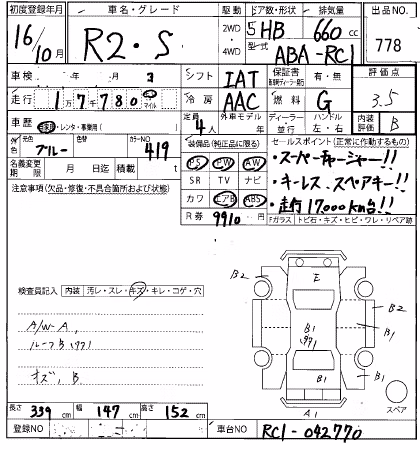 初度登録年月 車名・グレード 駆動 ドア数・形状 排気量 出品NO
16/10月 R2・S 2WD・4WD 5HB 660cc 778
型式 ABA-RC1
車検 年 月 シフト IAT 保証書 有・無 評価点
走行 1万7千780 マイル 冷房 AAC 燃料 G 3.5
車歴 レンタ・事業用( ) 定員 4人 外車モデル 年 ディーラー・並行 ハンドル 左・右 内装 B
外色 元色 ブルー カラーNO 419 装備品(純正品に限る) セールスポイント(正常に作動するもの)
名義変更期限 月 日迄 積載 t PS PW AW ・スーパーチャージャー!!
注意事項(欠品・修復・不具合箇所および状態) SR TV ナビ ・キーレス スペアキー!!
カワ エアB ABS ・走行17000km台!!
R券 9910円 Fガラス トビ石・キズ・ヒビ・ワレ・リペア跡
検査員記入 内装 汚レ・スレ・キズ・キレ・コゲ・穴
A/W-A,
ルーフB
キズ, B
E
B2
B1
B1
B1
B1
B2
A1
スペア
長さ 339cm 幅 147cm 高さ 152cm
登録NO 車台NO RC1-042770